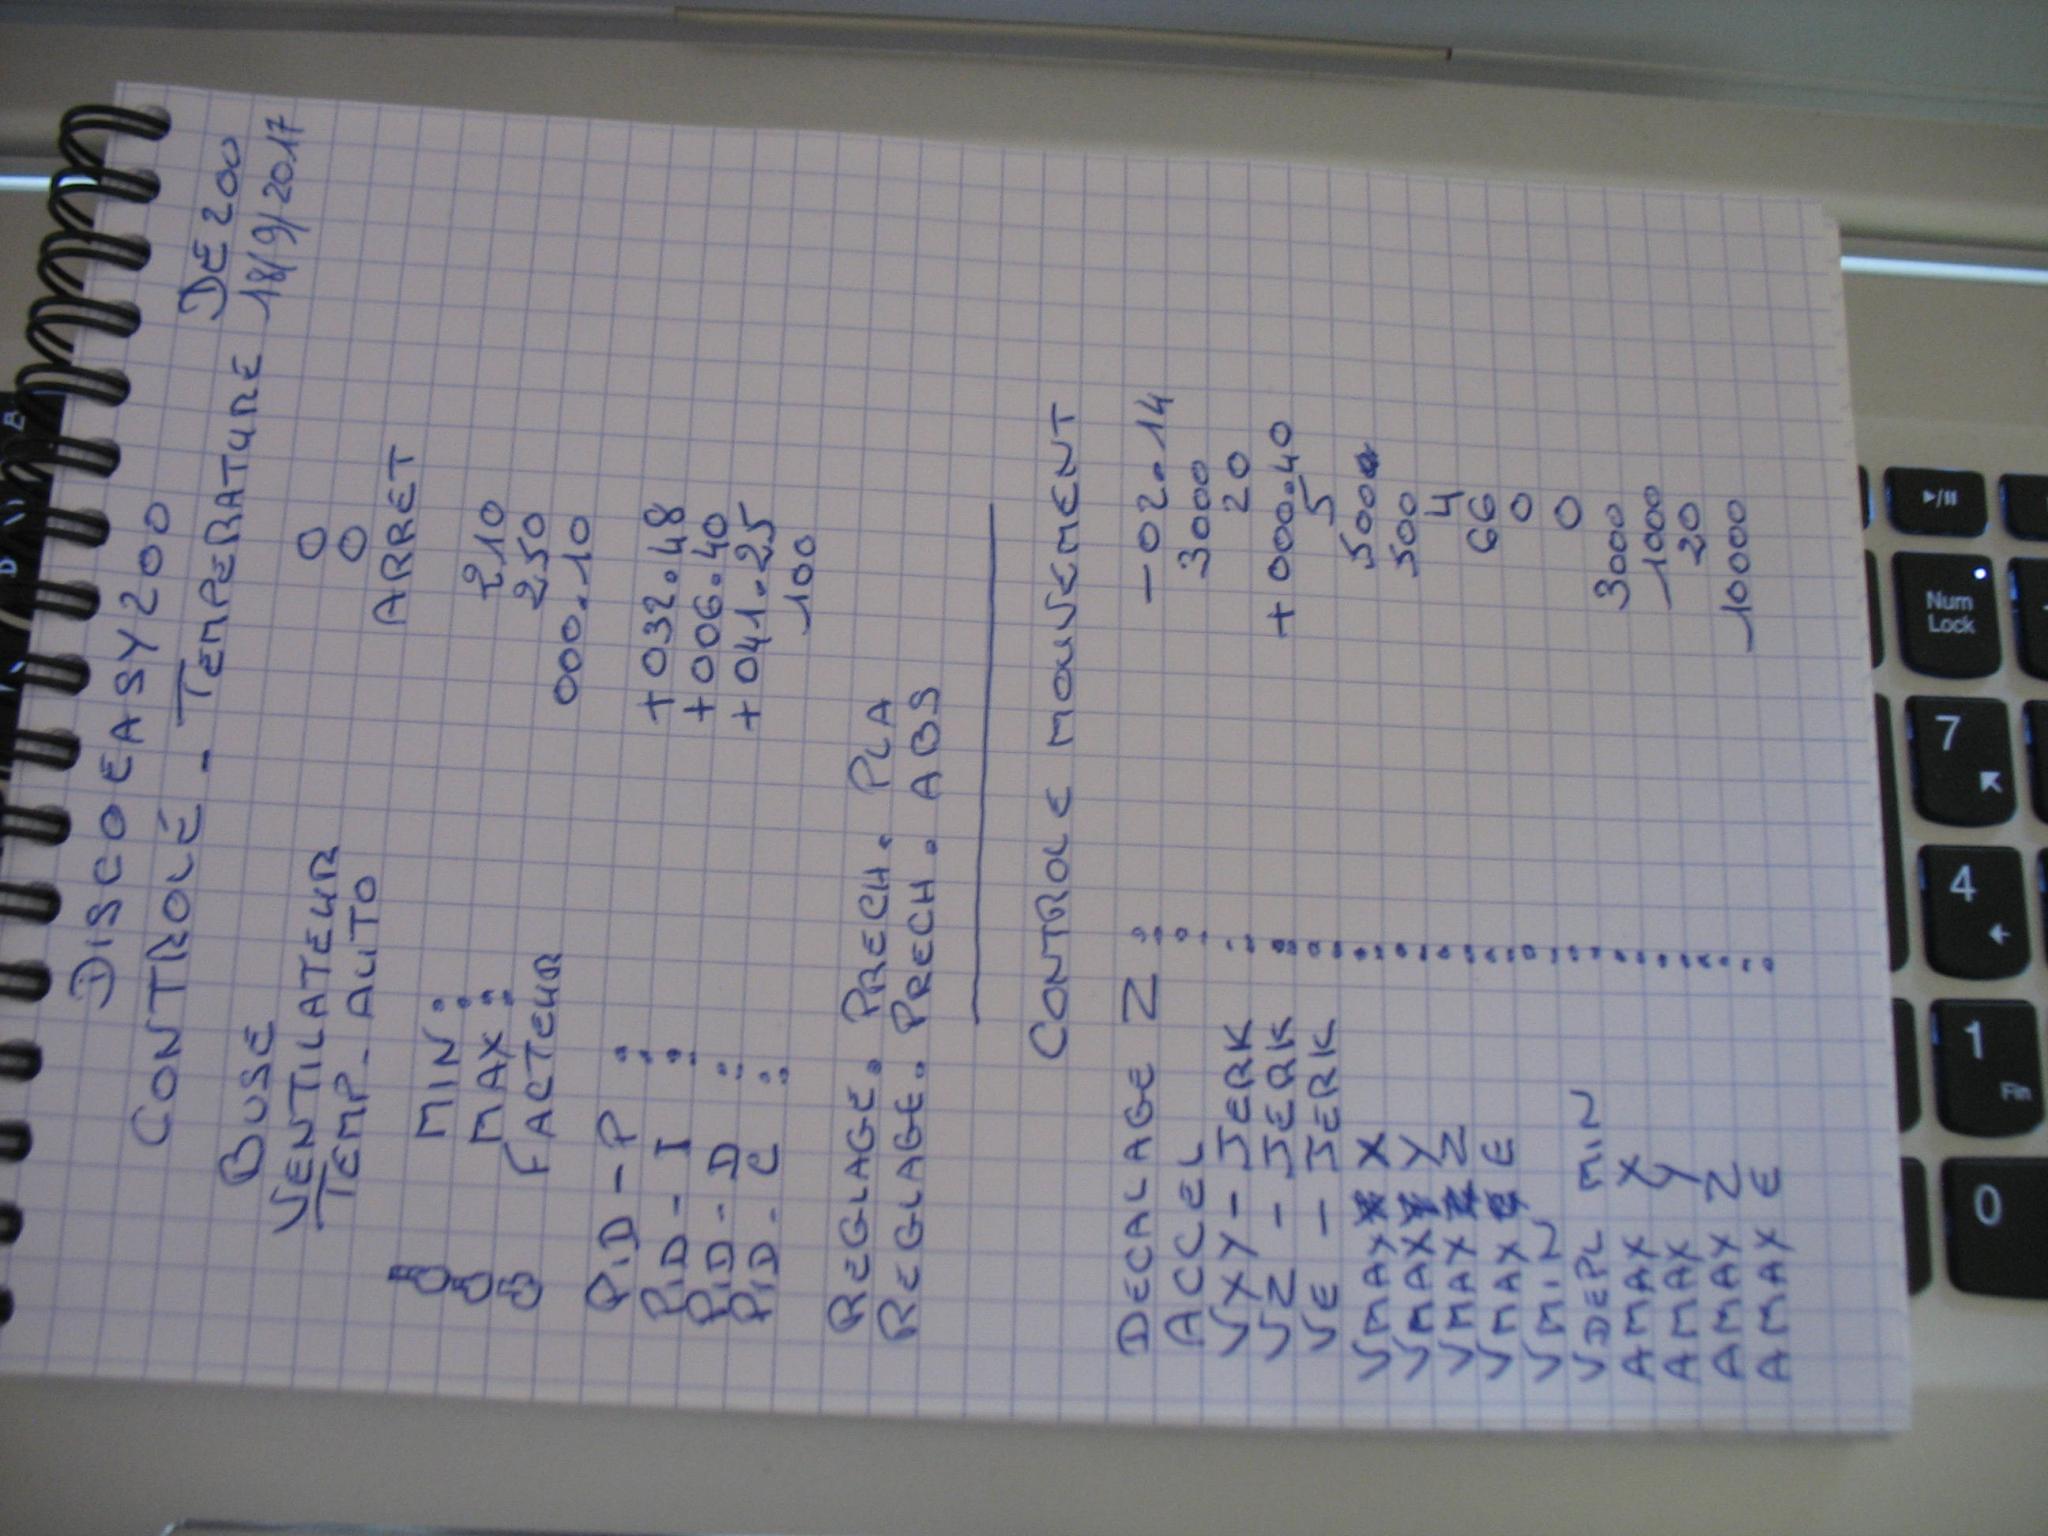 DISCOEASY200 DE200
CONTROLÉ - TEMPERATURE 18/9/2017
BUSE 0
VENTILATEUR 0
TEMP. AUTO ARRET
MIN : 210
MAX : 250
FACTEUR 000.10
PID - P : +032.48
PID - I : +006.40
PID - D : +041.25
PID - C : 100
REGLAGE. PRECH. PLA
REGLAGE. PRECH. ABS
CONTROLE MOUVEMENT
DECALAGE Z : -02.14
ACCEL : 3000
VXY - JERK : 20
VZ - JERK : +000.40
VE - JERK : 5
VMAX X : 500
VMAX Y : 500
VMAX Z : 4
VMAX E : 66
VMIN : 0
VDEPL MIN : 0
AMAX X : 3000
AMAX Y : 1000
AMAX Z : 20
AMAX E : 10000
Num
Lock
7
4
1
Fin
0